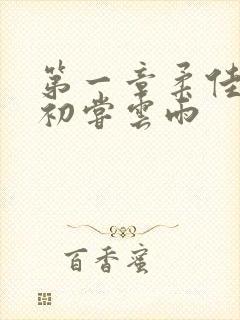 第一章柔佳
初嘗雲雨
百香蜜